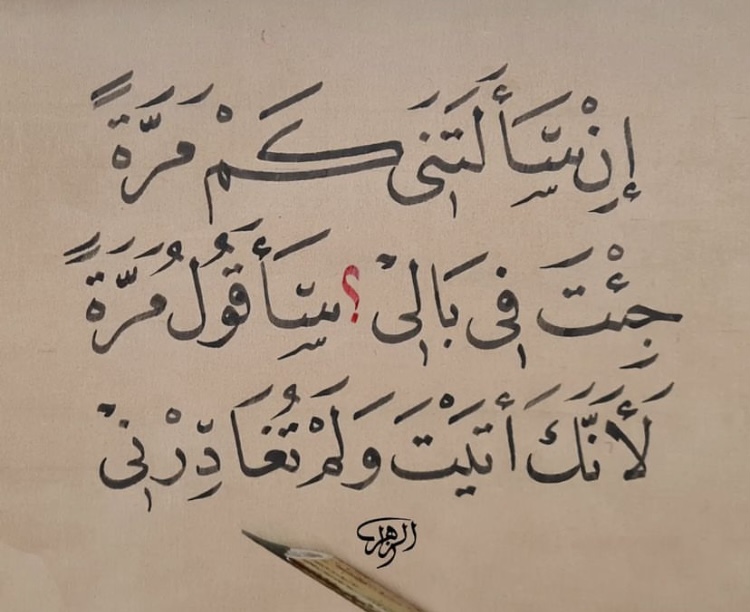 إِنْ سَأَلتَنَى كَمْ مَرَّةً
جِئْتَ فِى بَالِىْ؟ سَأَقُولُ مَرَّةً
لَأَنَّكَ أَتَيْتَ وَلَمْ تُغَادِرْنِى